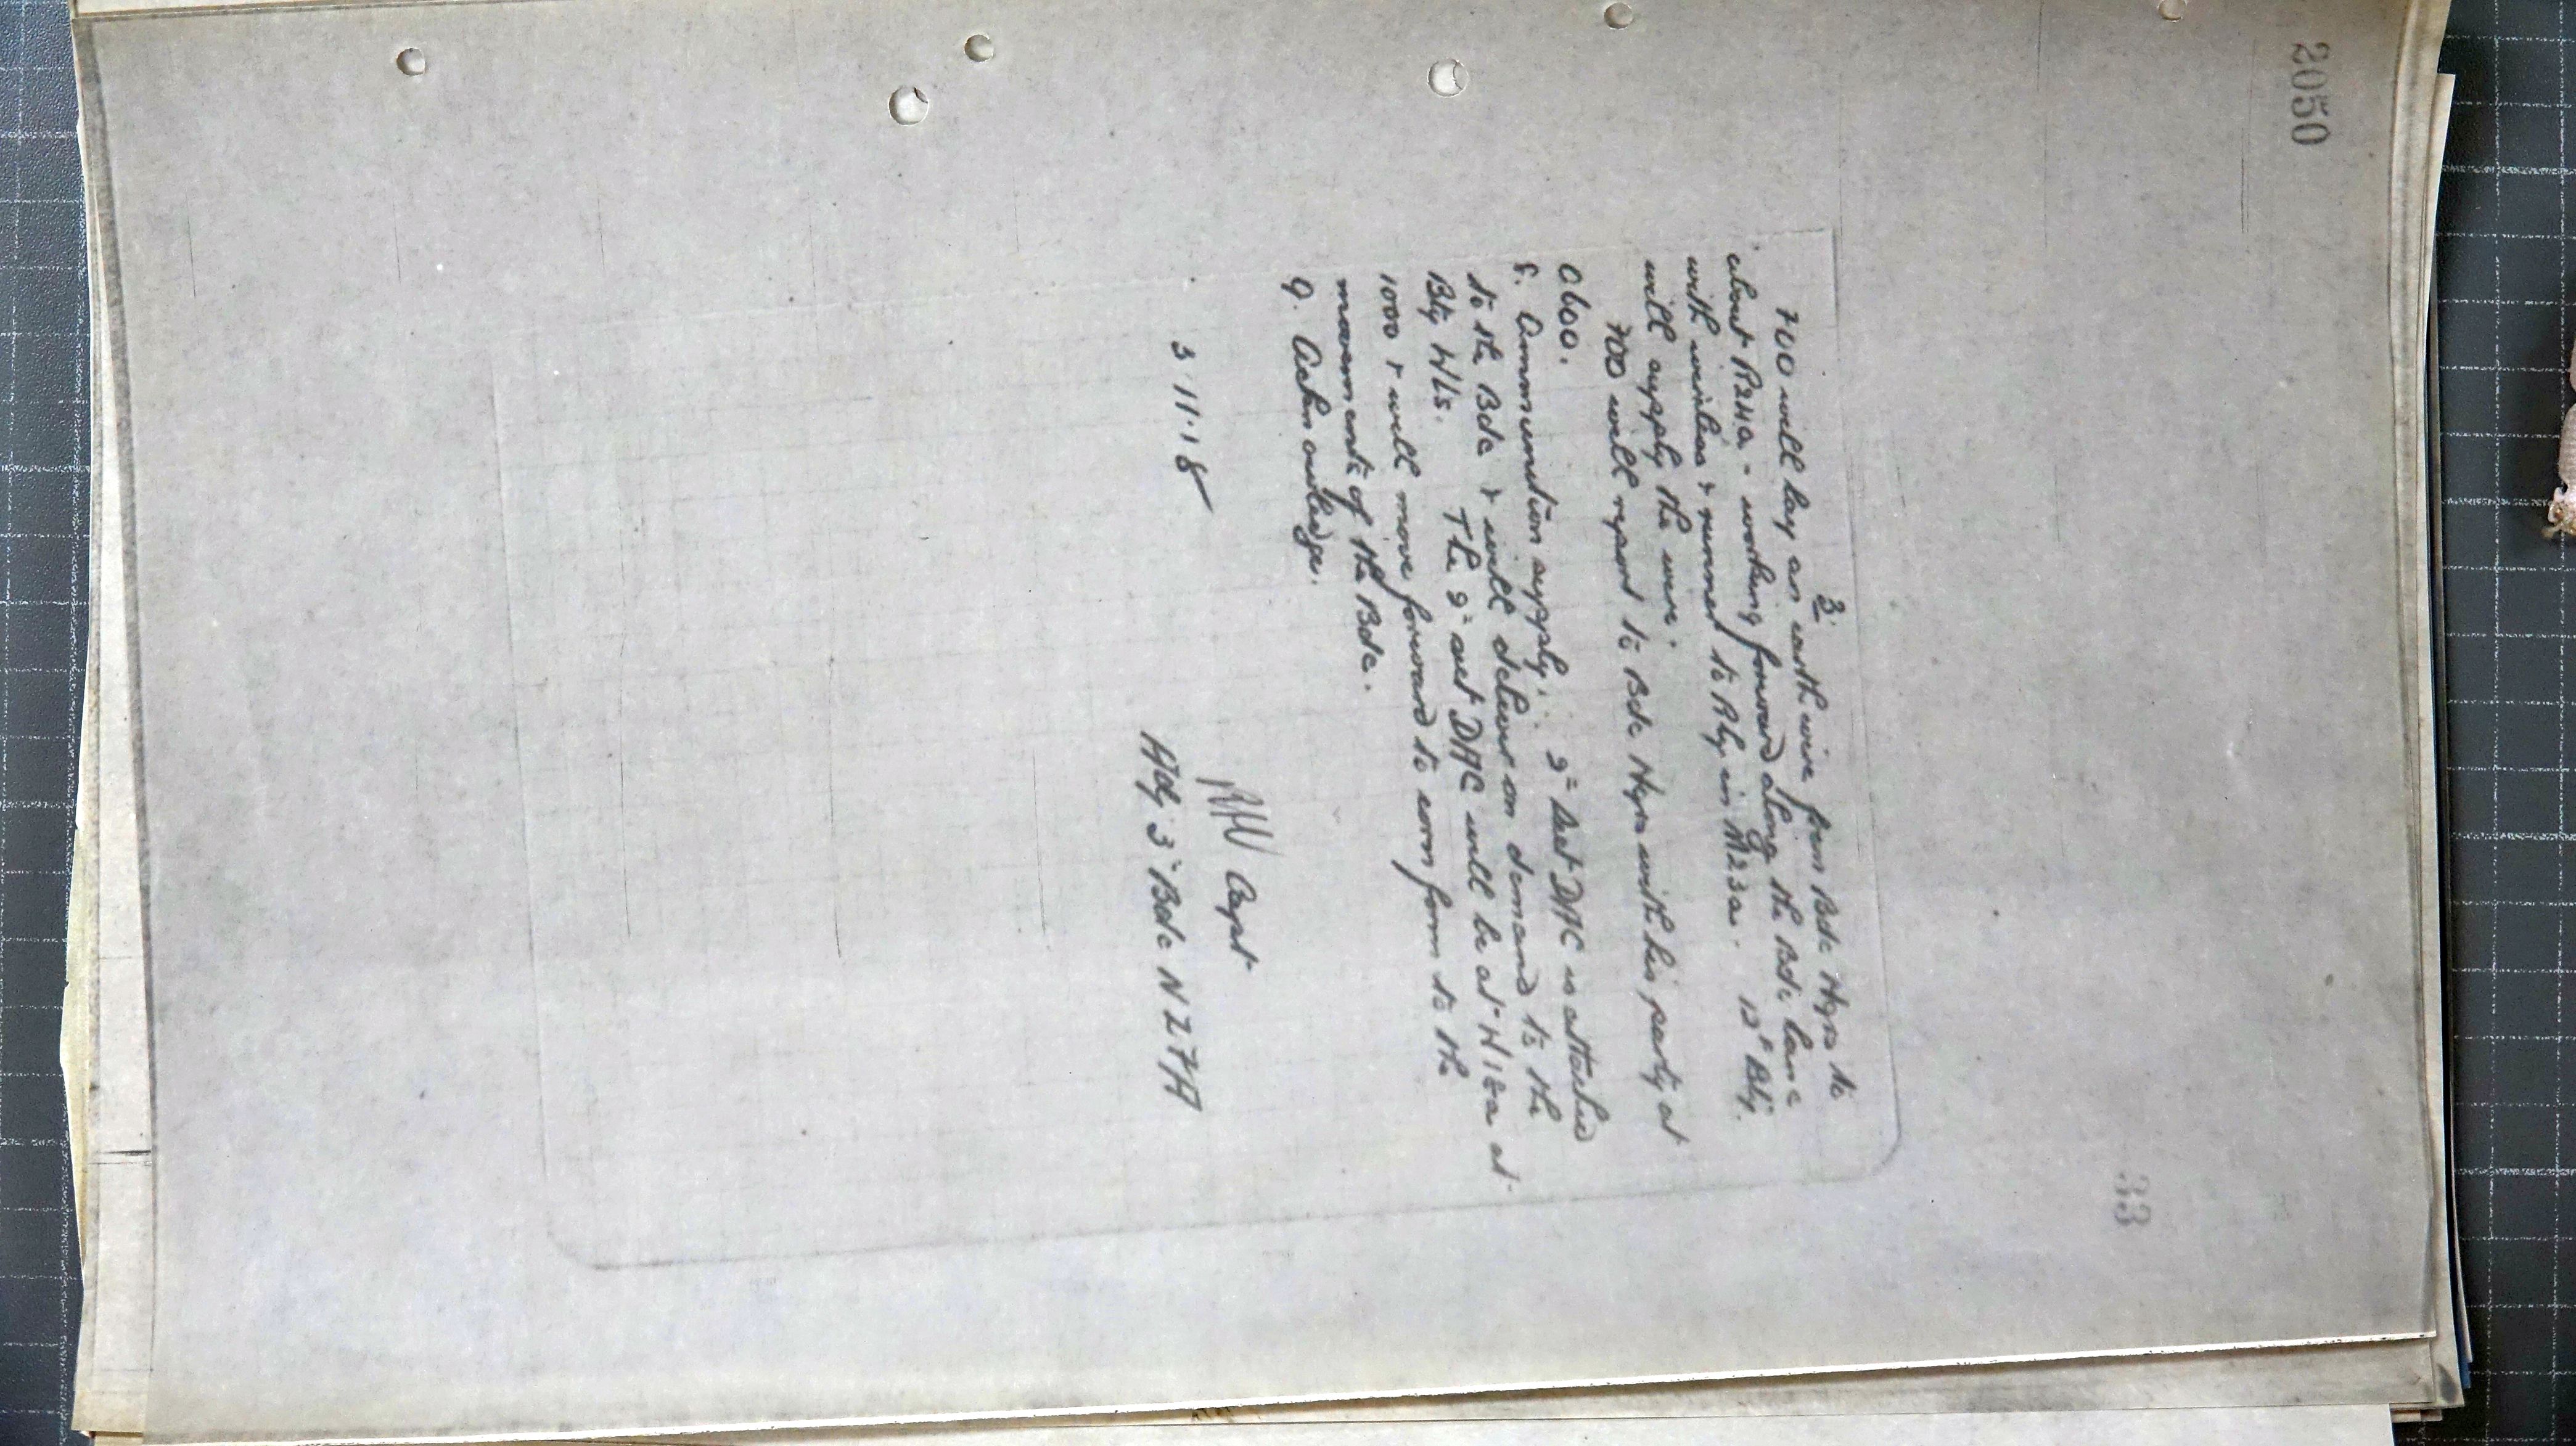 2050
33
3.
FOO will lay an earth wire from Bde Hqrs to
about R24a - working forward along the Bde lane
with wireless & runner to Rly in M23a. 12th Bty.
will supply the wire.
FOO will report to Bde Hqrs with his party at
0600.
8. Ammunition supply. 2nd Sect DAC is attached
to the Bde & will deliver on demand to the
Bty W/Ls. The 2nd sect DAC will be at W18a at
1000 & will move forward to conform to the
movements of the Bde.
9. Acknowledge.
Capt
3.11.18
Adj 3rd Bde NZFA